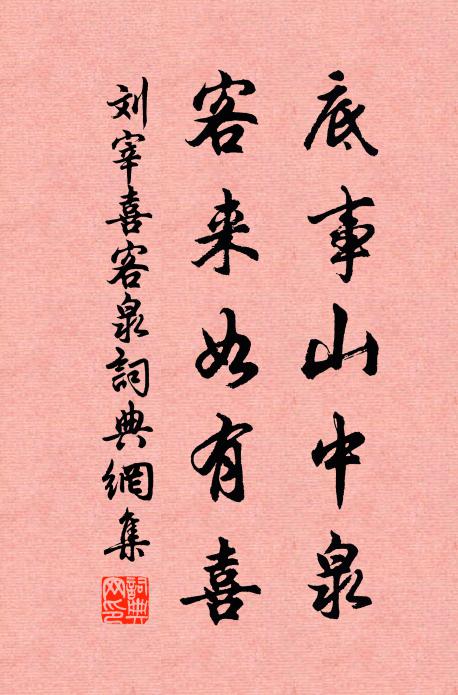 底事山中泉
客来如有喜
刘宰喜客泉詞典網集
詞典网印